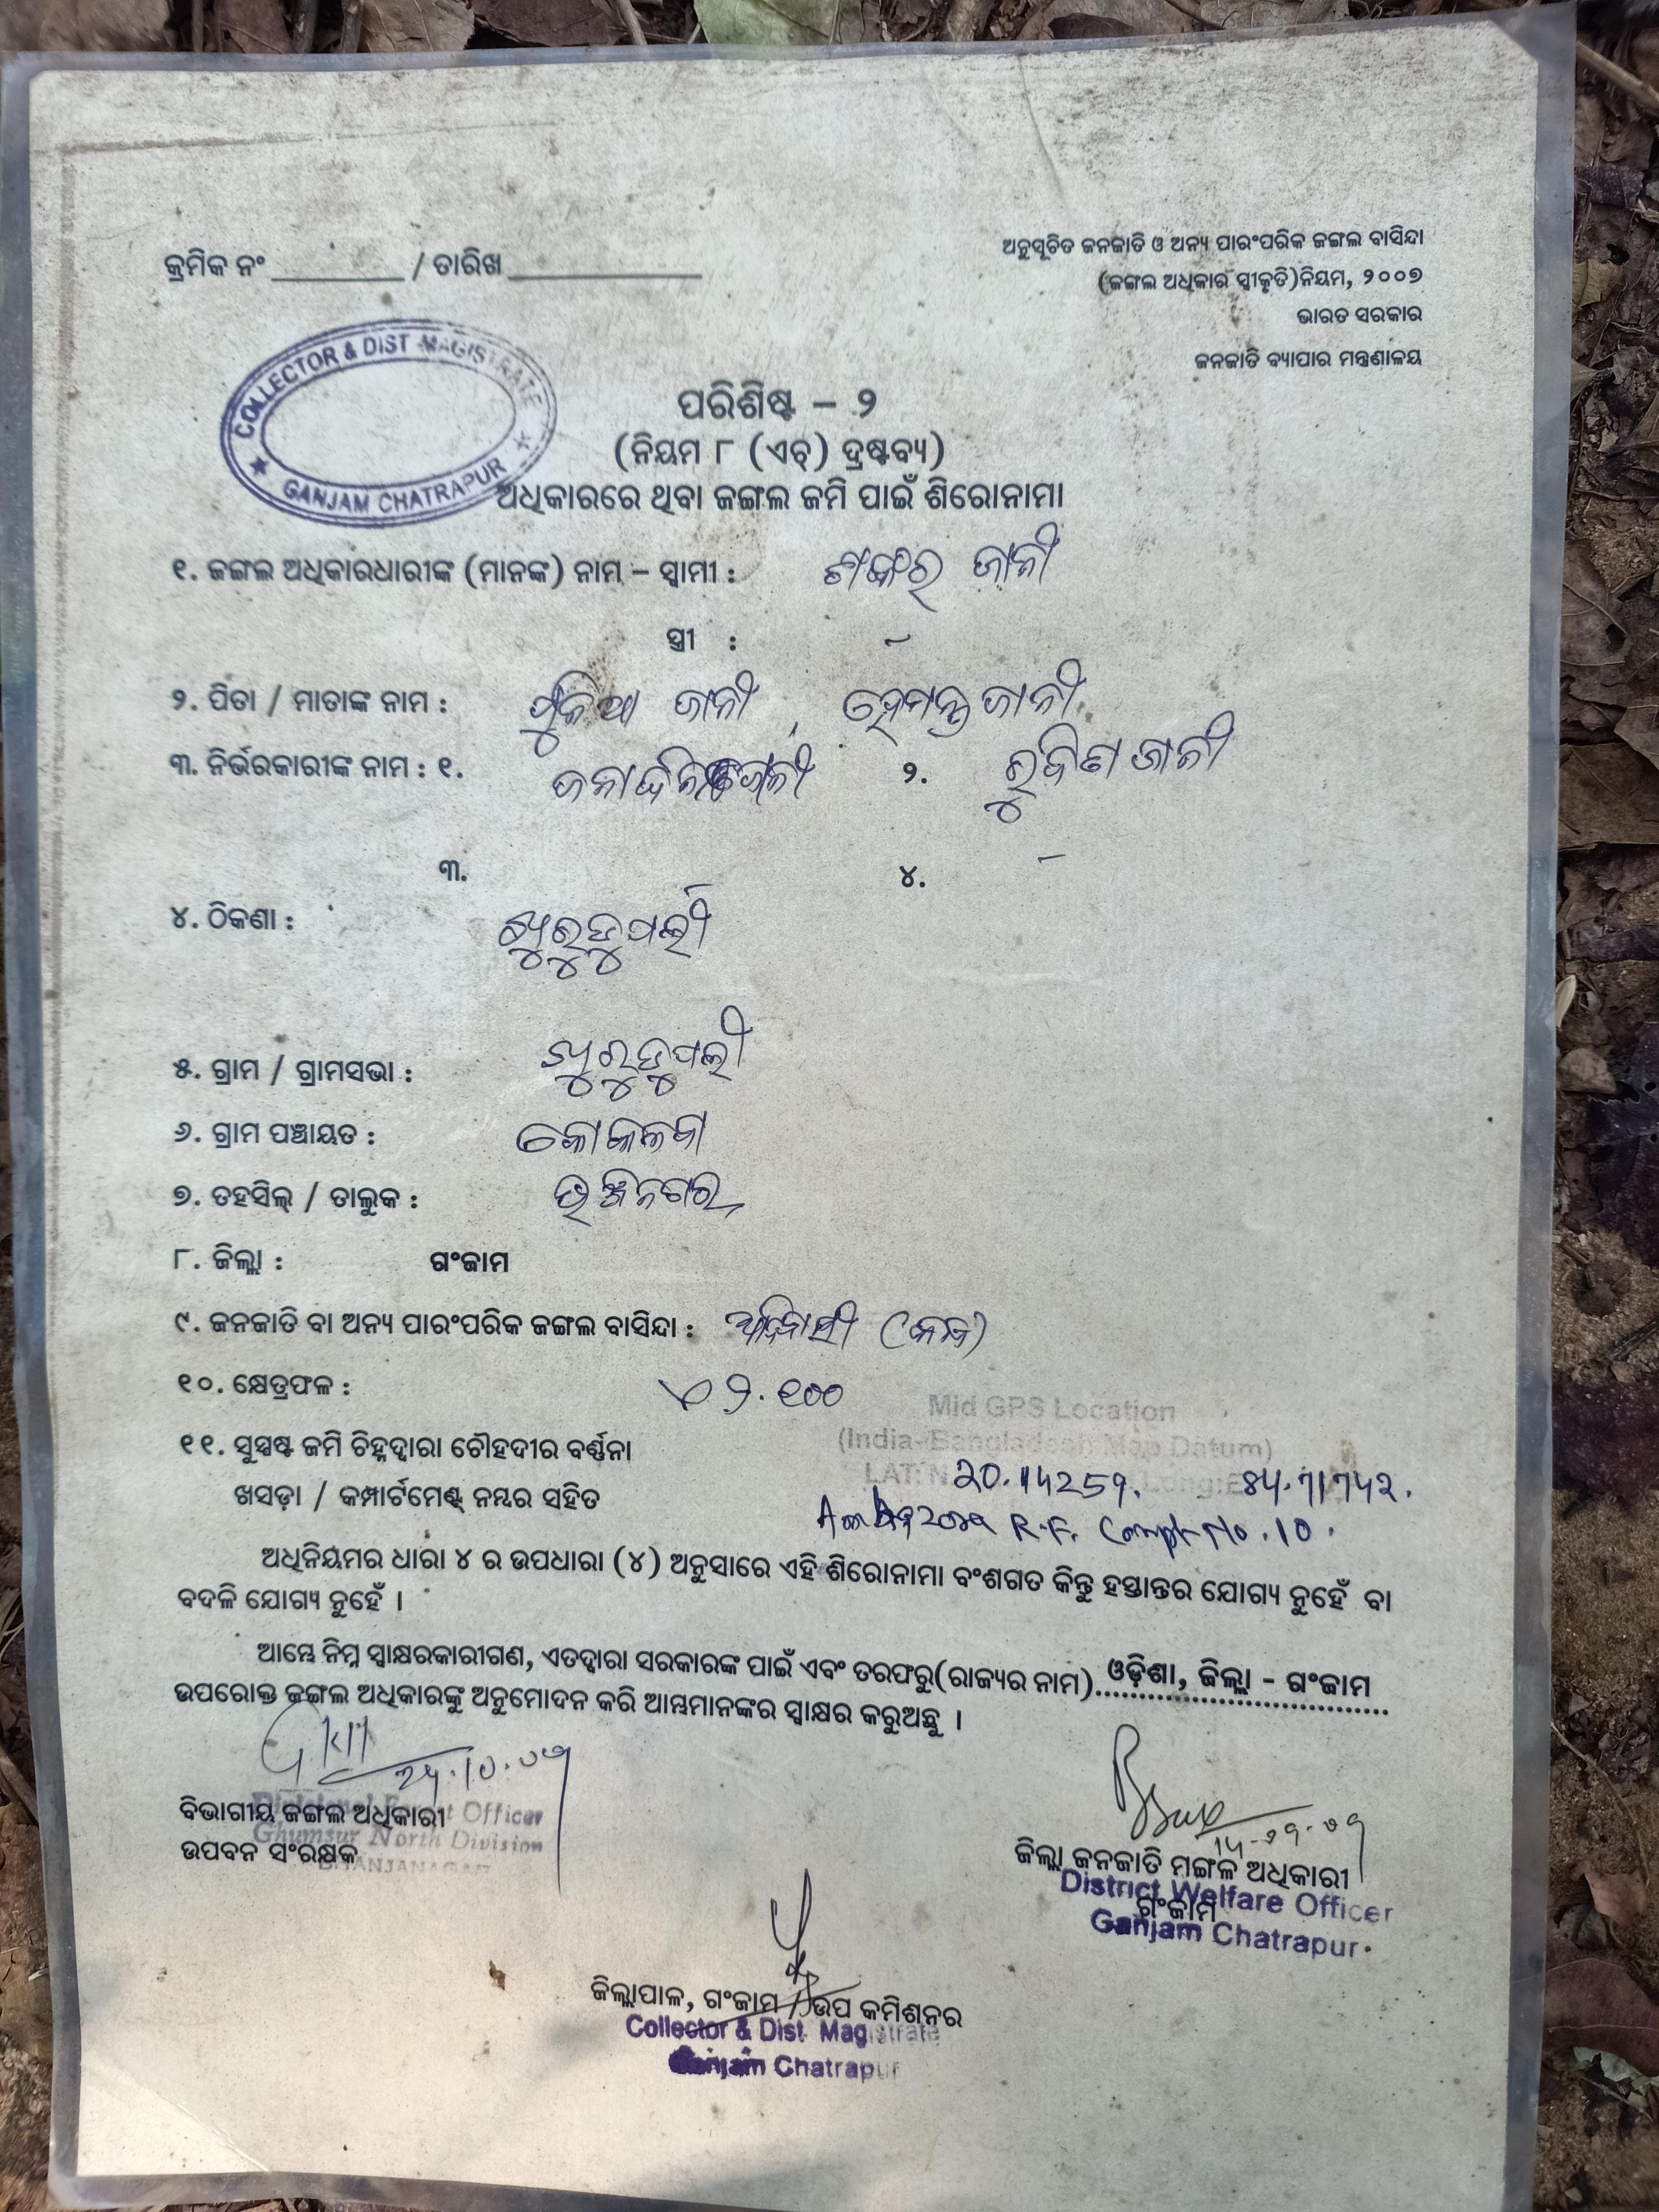 କ୍ରମିକ ନଂ ________ / ତାରିଖ __________
ଅନୁସୂଚିତ ଜନଜାତି ଓ ଅନ୍ୟ ପାରଂପରିକ ଜଙ୍ଗଲ ବାସିନ୍ଦା
(ଜଙ୍ଗଲ ଅଧିକାର ସ୍ୱୀକୃତି)ନିୟମ, ୨୦୦୭
ଭାରତ ସରକାର
ଜନଜାତି ବ୍ୟାପାର ମନ୍ତ୍ରଣାଳୟ
COLLECTOR & DIST MAGISTRATE
GANJAM CHATRAPUR
ପରିଶିଷ୍ଟ – ୨
(ନିୟମ ୮ (ଏଚ୍) ଦ୍ରଷ୍ଟବ୍ୟ)
ଅଧିକାରରେ ଥିବା ଜଙ୍ଗଲ ଜମି ପାଇଁ ଶିରୋନାମା
୧. ଜଙ୍ଗଲ ଅଧିକାରଧାରୀଙ୍କ (ମାନଙ୍କ) ନାମ – ସ୍ୱାମୀ : ଜାନୀ
ସ୍ତ୍ରୀ : –
୨. ପିତା / ମାତାଙ୍କ ନାମ : ଜାନୀ , ହେମନ୍ତ ଜାନୀ
୩. ନିର୍ଭରକାରୀଙ୍କ ନାମ : ୧. ଜାନୀ ୨. ଜାନୀ
୩. – ୪. –
୪. ଠିକଣା : ଖୁରୁଡୁପଲ୍ଲୀ
୫. ଗ୍ରାମ / ଗ୍ରାମସଭା : ଖୁରୁଡୁପଲ୍ଲୀ
୬. ଗ୍ରାମ ପଞ୍ଚାୟତ :
୭. ତହସିଲ୍ / ତାଲୁକ : ଭଞ୍ଜନଗର
୮. ଜିଲ୍ଲା : ଗଂଜାମ
୯. ଜନଜାତି ବା ଅନ୍ୟ ପାରଂପରିକ ଜଙ୍ଗଲ ବାସିନ୍ଦା : ଆଦିବାସୀ (କନ୍ଧ)
୧୦. କ୍ଷେତ୍ରଫଳ : ଏ ୨.୧୦୦
Mid GPS Location
(India-Bangladesh Map Datum)
୧୧. ସୁସ୍ପଷ୍ଟ ଜମି ଚିହ୍ନଦ୍ୱାରା ଚୌହଦୀର ବର୍ଣ୍ଣନା
LAT: N Long:E
ଖସଡ଼ା / କମ୍ପାର୍ଟମେଣ୍ଟ୍ ନମ୍ବର ସହିତ
R.F. Compt No. 10.
ଅଧିନିୟମର ଧାରା ୪ ର ଉପଧାରା (୪) ଅନୁସାରେ ଏହି ଶିରୋନାମା ବଂଶଗତ କିନ୍ତୁ ହସ୍ତାନ୍ତର ଯୋଗ୍ୟ ନୁହେଁ ବା
ବଦଳି ଯୋଗ୍ୟ ନୁହେଁ ।
ଆମ୍ଭେ ନିମ୍ନ ସ୍ୱାକ୍ଷରକାରୀଗଣ, ଏତଦ୍ୱାରା ସରକାରଙ୍କ ପାଇଁ ଏବଂ ତରଫରୁ(ରାଜ୍ୟର ନାମ) ଓଡ଼ିଶା, ଜିଲ୍ଲା - ଗଂଜାମ
ଉପରୋକ୍ତ ଜଙ୍ଗଲ ଅଧିକାରଙ୍କୁ ଅନୁମୋଦନ କରି ଆମ୍ଭମାନଙ୍କର ସ୍ୱାକ୍ଷର କରୁଅଛୁ ।
ବିଭାଗୀୟ ଜଙ୍ଗଲ ଅଧିକାରୀ
Divisional Forest Officer
Ghumsur North Division
ଉପବନ ସଂରକ୍ଷକ
BHANJANAGAR
ଜିଲ୍ଲା ଜନଜାତି ମଙ୍ଗଳ ଅଧିକାରୀ
District Welfare Officer
ଗଂଜାମ
Ganjam Chatrapur
ଜିଲ୍ଲାପାଳ, ଗଂଜାମ / ଉପ କମିଶନର
Collector & Dist. Magistrate
Ganjam Chatrapur